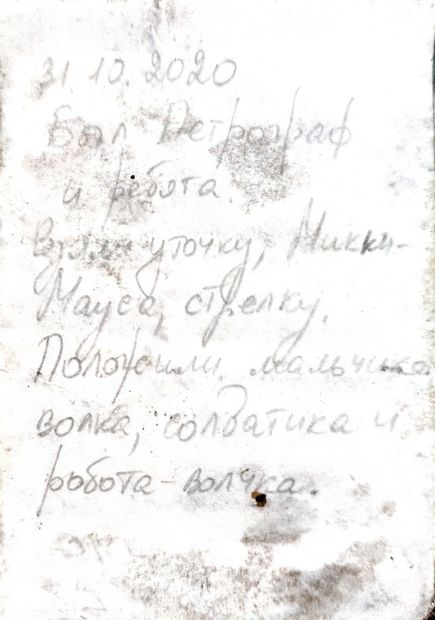 31.10.2020
Был Петрограф
и ребёта.
Взяли уточку, Микки-
Мауса, стрелку.
Положили мальчика
волка, солдатика и
робота-волчка.